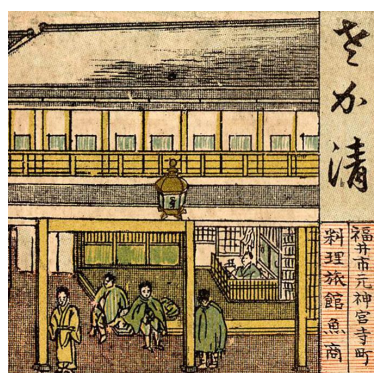 さか清
福井市元神宮寺町
料理旅館魚商